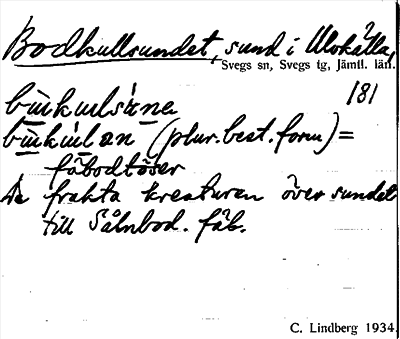 Bodkullsundet, sund i Ulvkälla,
Svegs sn, Svegs tg, Jämtl. län.
181
būkụlsúne
būkụlan (plur. best. form) =
fäbodtöser
De frakta kreaturen över sundet
till Sålnbod. fäb.
C. Lindberg 1934.